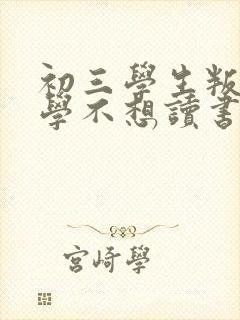 初三學生叛
學不想讀書
宮崎學